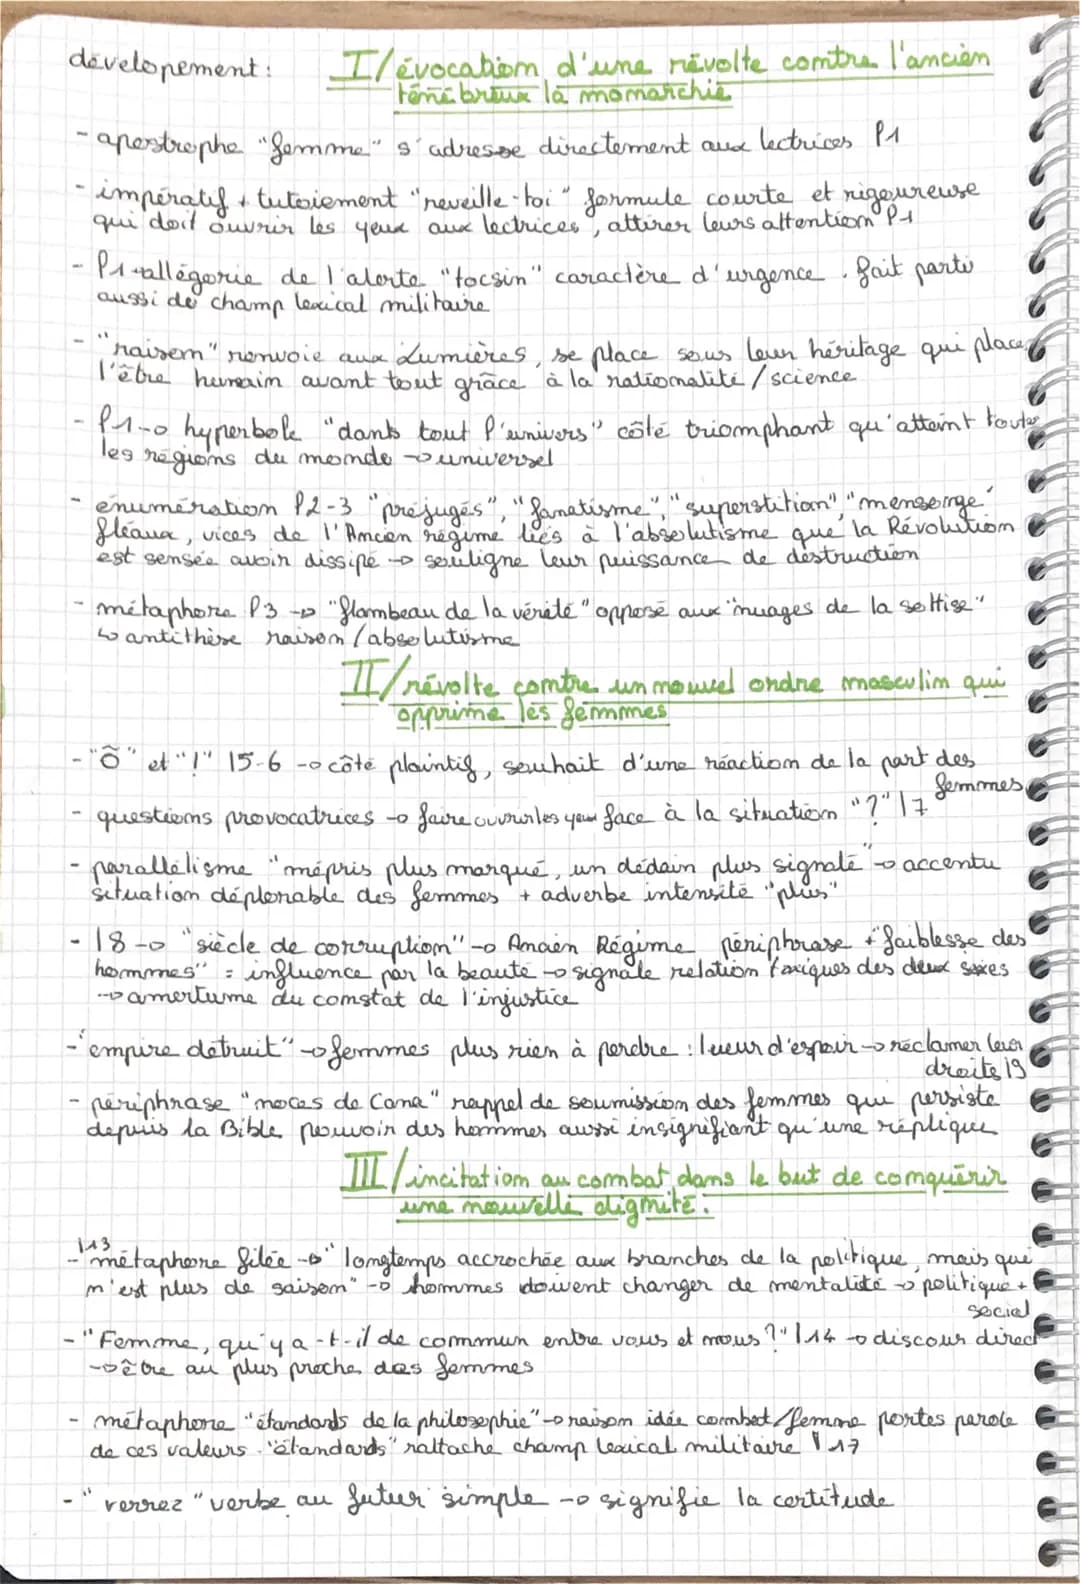 dévelopement :
I/évocation d'une révolte contre l'ancien
ténébreux la monarchie
- apostrophe "femme" s'adresse directement aux lectrices l1
- impératif + tutoiement "reveille-toi" formule courte et rigoureuse
qui doit ouvrir les yeux aux lectrices, attirer leurs attention l1
- l1→allégorie de l'alerte "tocsin" caractère d'urgence. fait parti
aussi de champ lexical militaire
- "raison" renvoie aux Lumières, se place sous leur héritage qui place
l'être humain avant tout grâce à la rationalité/science
- l1→ hyperbole "dants tout l'univers" côté triomphant qu'atteint toutes
les régions du monde → universel
- énumération l2-3 "préjugés", "fanatisme", "superstition", "mensonge"
fléaux, vices de l'Ancien régime liés à l'absolutisme que la Révolution
est sensée avoir dissipé → souligne leur puissance de destruction
- métaphore l3 → "flambeau de la vérité" opposé aux "nuages de la sottise"
↳ antithèse raison/absolutisme
II/révolte contre un nouvel ordre masculin qui
opprime les femmes
- "Ô" et "!" l5-6 → côté plaintif, souhait d'une réaction de la part des
femmes
- questions provocatrices → faire ouvrir les yeux face à la situation "?" l7
- parallélisme "mépris plus marqué, un dédain plus signalé" → accentu
situation déplorable des femmes + adverbe intensité "plus"
- l8 → "siècle de corruption" → Ancien Régime périphrase + "faiblesse des
hommes" = influence par la beauté → signale relation toxiques des deux sexes
→ amertume du constat de l'injustice
- "empire détruit" → femmes plus rien à perdre : lueur d'espoir → réclamer leur
droits l9
- périphrase "noces de Cana" rappel de soumission des femmes qui persiste
depuis la Bible pouvoir des hommes aussi insignifiant qu'une réplique
III/incitation au combat dans le but de conquérir
une nouvelle dignité.
l13
- métaphore filée → "longtemps accrochée aux branches de la politique, mais qui
n'est plus de saison" → hommes doivent changer de mentalité → politique +
social
- "Femme, qu'y a-t-il de commun entre vous et nous ?" l14 → discours direct
→ être au plus proche des femmes
- métaphore "étandards de la philosophie" → raison idée combat/femme portes parole
de ces valeurs. "étandards" rattache champ lexical militaire l17
- "verrez" verbe au futur simple → signifie la certitude